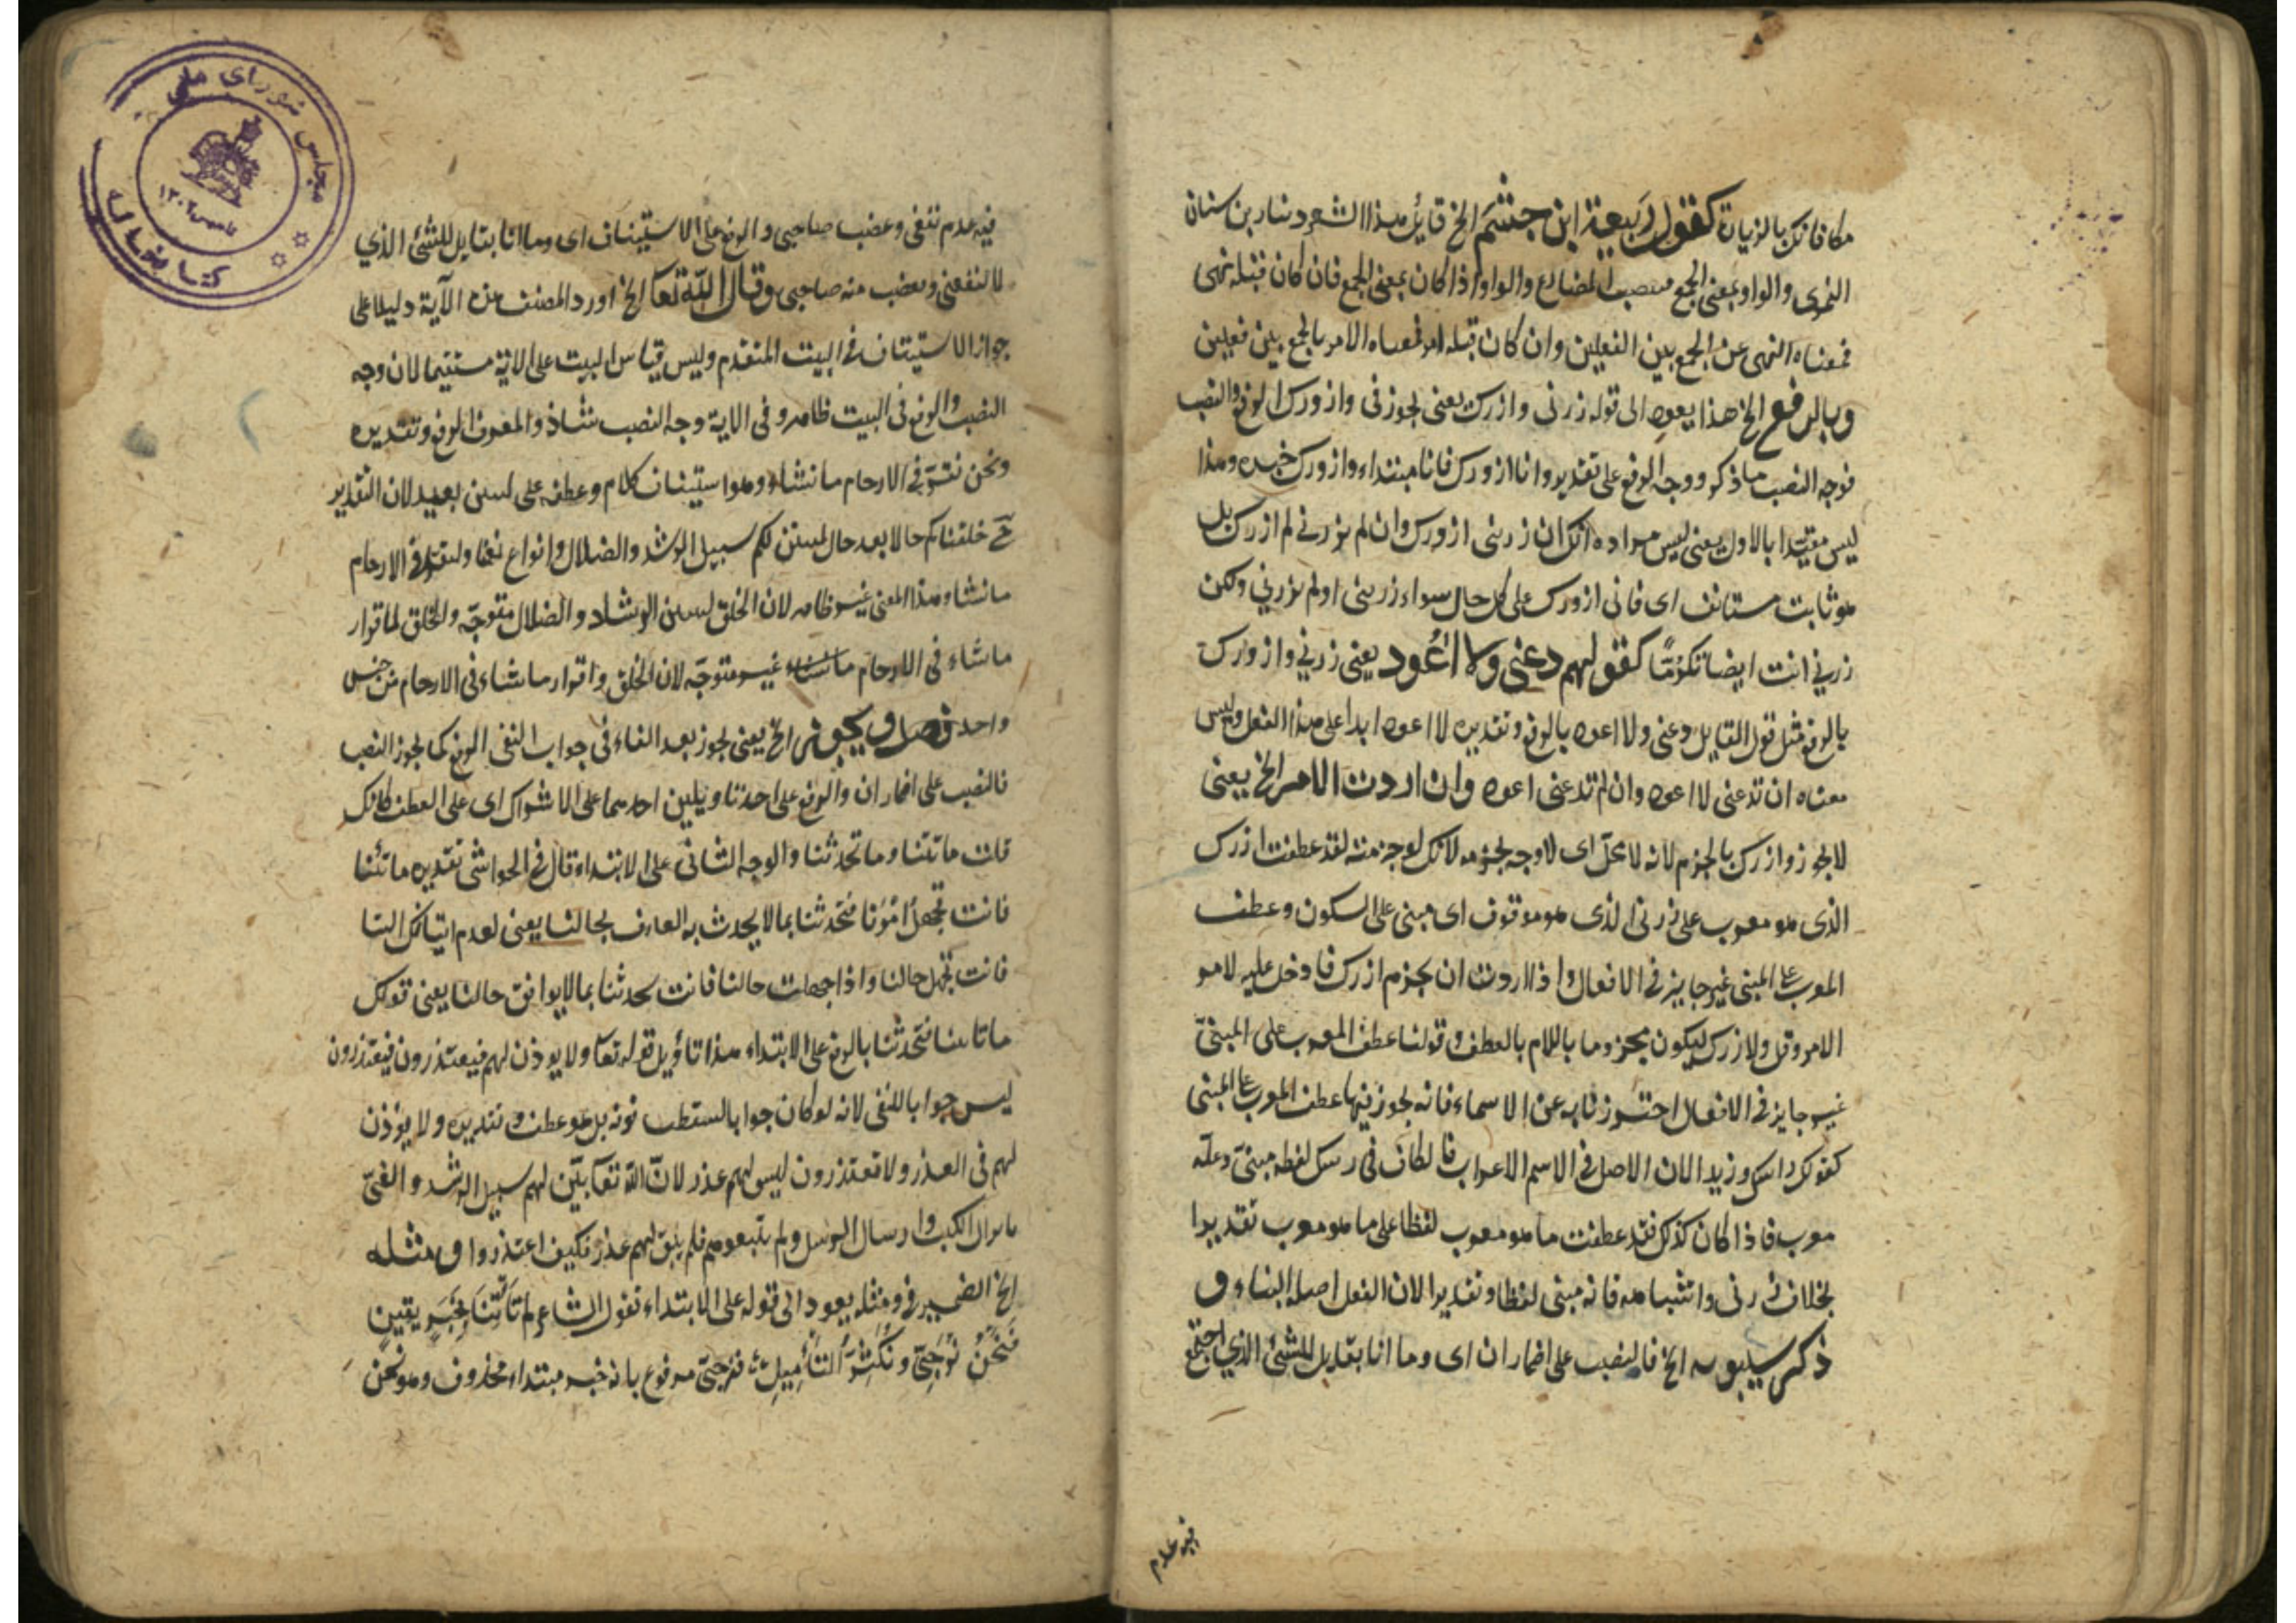 مكافاتك بالزيارة كقول ربيعة ابن جشم الخ قايل هذا الشعر دثار بن سنان
النمرى والواو بمعنى الجمع ينصب المضارع والواو اذا كان بمعنى الجمع فان كان قبله نهى
فمعناه النهى عن الجمع بين الفعلين وان كان قبله امر فمعناه الامر بالجمع بين فعلين
وبالرفع الخ هذا يعود الى قوله زرنى وازورك يعنى يجوز فى وازورك الرفع والنصب
فوجه النصب ما ذكر ووجه الرفع على تقدير وانا ازورك فانا مبتداء وازورك خبره وهذا
ليس مقيّدا بالاول يعنى ليس مراده انك ان زرتنى ازورك وان لم تزرنى لم ازرك بل
هو ثابت مستانف اى فانى ازورك على كل حال سواء زرتنى اولم تزرني ولكن
زرني انت ايضا تكرّمًا كقولهم دعنى ولا اعُود يعنى زرني وازورك
بالرفع مثل قول القايل دعنى ولا اعود بالرفع وتقديره لا اعود ابدا على هذا الفعل وليس
معناه ان تدعنى لا اعود وان لم تدعنى اعود وان اردت الامر الخ يعنى
لا يجوز وازرك بالجزم لانه لا محلّ اى لا وجه لجزمه لانك لو جزمته لقد عطفت ازرك
الذى هو معرب على زرنى الذى هو موقوف اى مبنى على السكون وعطف
المعرب على المبنى غير جايز فى الافعال اذا اردت ان تجزم ازرك فادخل عليه لام
الامر وقل ولازرك ليكون مجزوما باللام بالعطف وقولنا عطف المعرب على المبنىّ
غير جايز فى الافعال احترزنا به عن الاسماء فانه يجوز فيها عطف المعرب على المبنى
كقولك وزيدا لان الاصل فى الاسم الاعراب فالكاف فى لفظه مبنىّ ومحله
معرب فاذا كان كذلك فقد عطفت ما هو معرب لفظا على ما هو معرب تقديرا
بخلاف زرنى واشباهه فانه مبنى لفظا وتقديرا لان الفعل اصله البناء و
ذكر سيبويه الخ فالنصب على اضمار ان اى وما انا بقايل للشئ الذي اجتمع
فيه عدم
فيه عدم نفعى وغضب صاحبى والرفع على الاستيناف اى وما انا بقايل للشئ الذي
لا ينفعنى ويغضب منه صاحبى وقال اللّه تعا الخ اورد المصنف هذه الآية دليلا على
جواز الاستيناف فى البيت المتقدم وليس قياس البيت على الاية مستقيما لان وجه
النصب والرفع فى البيت ظاهر وفى الاية وجه النصب شاذ والمعروف الرفع وتقديره
ونحن نقرّ فى الارحام ما نشاء وهو استيناف كلام وعطفه على لنبين بعيد لان التقدير
ح خلقناكم حالا بعد حال لنبين لكم سبيل الرشد والضلال وانواع نعمنا ولنقرّ فى الارحام
ما نشاء وهذا المعنى غير ظاهر لان الخلق لنبين الرشاد والضلال متوجّه والخلق لاقرار
ما نشاء فى الارحام غير متوجّه لان الخلق واقرار ما نشاء فى الارحام من جنس
واحد فصل ويجوز الخ يعنى يجوز بعد الفاء فى جواب النفى الرفع كما يجوز النصب
فالنصب على اضمار ان والرفع على احد تاويلين احدهما على الاشراك اى على العطف كانك
قلت ما تاتينا وما تحدثنا والوجه الثانى على الابتداء قال فى الحواشى تقديره ما تأتينا
فانت تجهلُ امُورَنا فتحدثنا بما لا يحدث به العارف بحالنا يعنى لعدم اتيانك الينا
فانت تجهل حالنا واذا جهلت حالنا فانت تحدثنا بما لا يوافق حالنا يعنى قولك
ما تاتينا فتحّدثنا بالرفع على الابتداء هذا تأويل قوله تعا ولا يوذن لهم فيعتذرون فيعتذرون
ليس جوابا للنفى لانه لو كان جوابا لسقطت نونه بل هو عطف وتقديره ولا يؤذن
لهم فى العذر ولا يعتذرون ليس لهم عذر لانّ اللّه تعا بيّن لهم سبيل الرشد والغىّ
بانزال الكتب وارسال الرسل ولم يتبعوهم فلم يبق لهم عذر فكيف اعتذروا ومثله
الخ الضمير فى ومثله يعود الى قوله على الابتداء تقول الشاعر لم تَأتِنَا بِخَبَرٍ يقينٍ
فَنَحْنُ نُرَجِّىّ ونُكْثِرُ التَأْمِيلِ فنرجىّ مرفوع بانه خبر مبتداء محذوف وهو نحن
مجلس شوراى ملى
كتابخانه
تاسيس ١٣٠٢